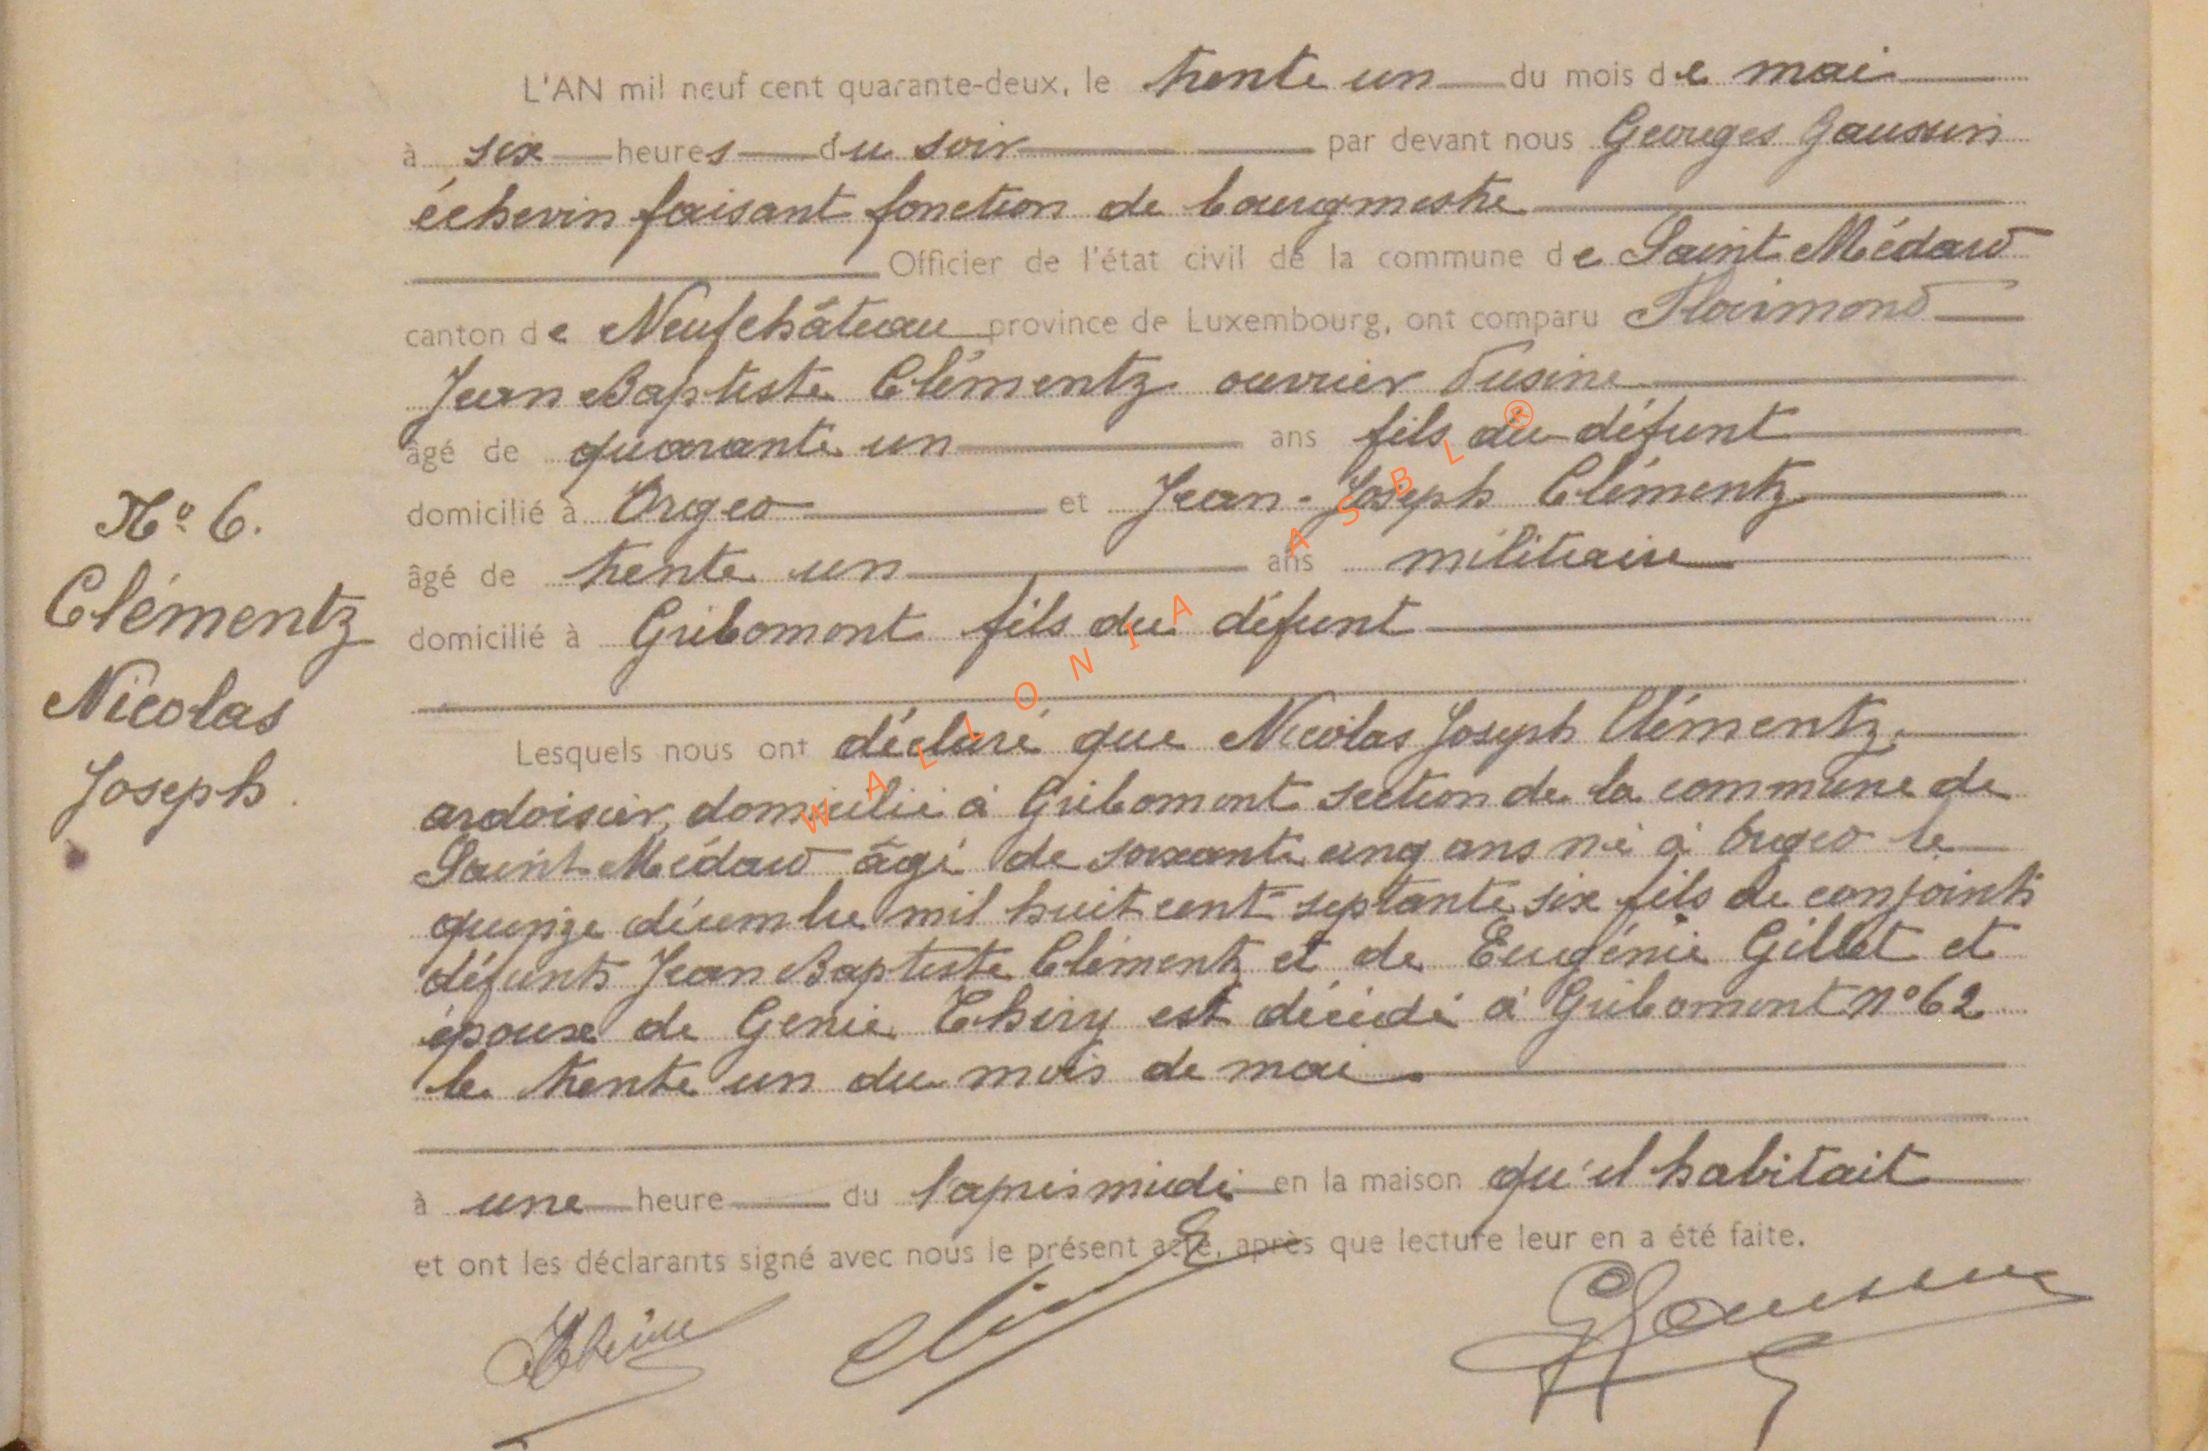 L'AN mil neuf cent quarante-deux, le trente un du mois de mai
à six heures du soir par devant nous Georges Gaussin
échevin faisant fonction de bourgmestre
Officier de l'état civil de la commune de Saint Médard
canton de Neufchâteau province de Luxembourg, ont comparu Florimond
Jean Baptiste Clémentz ouvrier d'usine
âgé de quarante un ans fils du défunt
domicilié à Orgeo et Jean-Joseph Clémentz
âgé de trente un ans militaire
domicilié à Gribomont fils du défunt
Nº 6.
Clémentz
Nicolas
Joseph
Lesquels nous ont déclaré que Nicolas Joseph Clémentz
ardoisier, domicilié à Gribomont section de la commune de
Saint Médard âgé de soixante cinq ans né à Orgeo le
quinze décembre mil huit cent septante six fils de conjoints
défunts Jean Baptiste Clémentz et de Eugénie Gillet et
époux de Genie Thiry est décédé à Gribomont nº 62
le trente un du mois de mai
à une heure du l'après midi en la maison qu'il habitait
et ont les déclarants signé avec nous le présent acte, après que lecture leur en a été faite.
GGaussin
WALLONIA ASBL ®